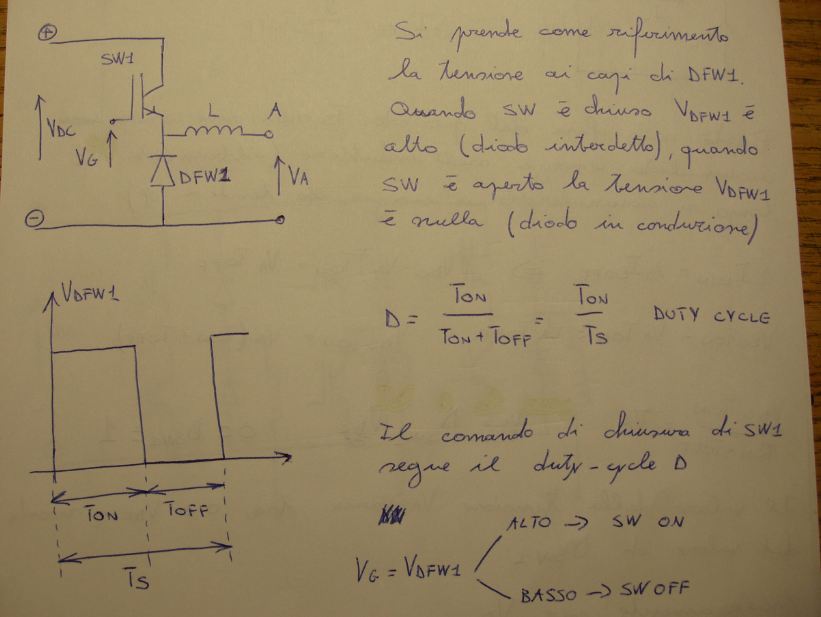 +
SW1
L
A
VDC
VG
DFW1
VA
-
Si prende come riferimento
la tensione ai capi di DFW1.
Quando SW è chiuso VDFW1 è
alto (diodo interdetto), quando
SW è aperto la tensione VDFW1
è nulla (diodo in conduzione)
VDFW1
TON
TOFF
TS
D = TON / (TON + TOFF) = TON / TS DUTY CYCLE
Il comando di chiusura di SW1
segue il duty-cycle D
ALTO → SW ON
VG = VDFW1
BASSO → SW OFF